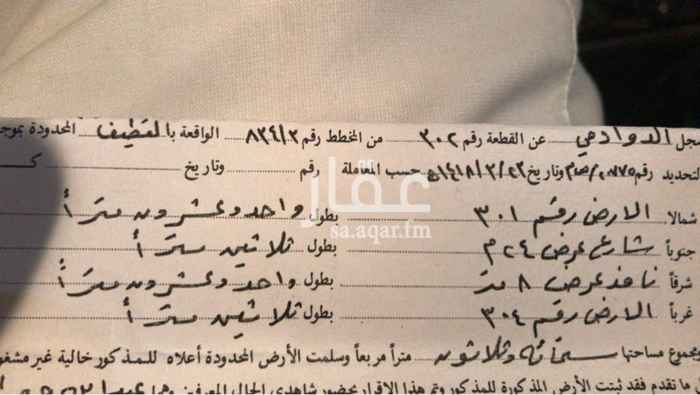 سجل الدوادمي عن القطعة رقم ٣٠٢ من المخطط رقم ٨٣٤/٢ الواقعة بالقطيف المحدودة بموجب
التحديد رقم وتاريخ ١٤١٨/٢/٢٣ حسب المعاملة رقم وتاريخ
شمالا الارض رقم ٣٠١ بطول واحد وعشرون مترأ
جنوباً شارع عرض ٢٤م بطول ثلاثين مترأ
شرقاً نافذ عرض ٨ متر بطول واحد وعشرون مترأ
غرباً الارض رقم ٣٠٤ بطول ثلاثين مترأ
ومجموع مساحتها ستمائة وثلاثون متراً مربعاً وسلمت الأرض المحدودة أعلاه للمذكور خالية غير مشغولة
ما تقدم فقد ثبتت الأرض المذكورة للمذكور وتم هذا الاقرار بحضور شاهدي الحال المعرفين وهما
عقار
sa.aqar.fm